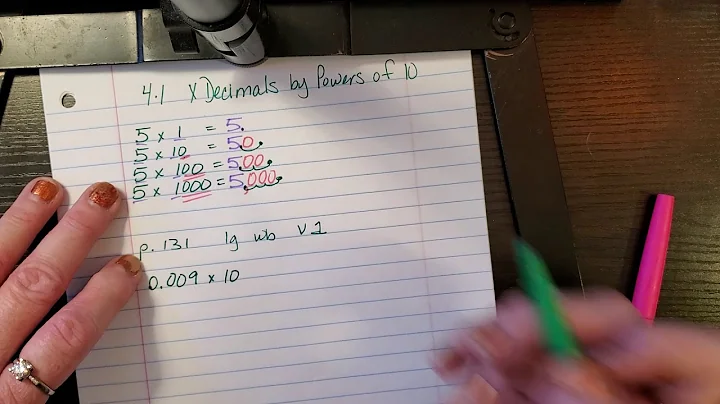 4.1 x Decimals by Powers of 10
5 x 1 = 5.
5 x 10 = 50.
5 x 100 = 500.
5 x 1000 = 5,000.
p. 131 lg wb v1
0.009 x 10